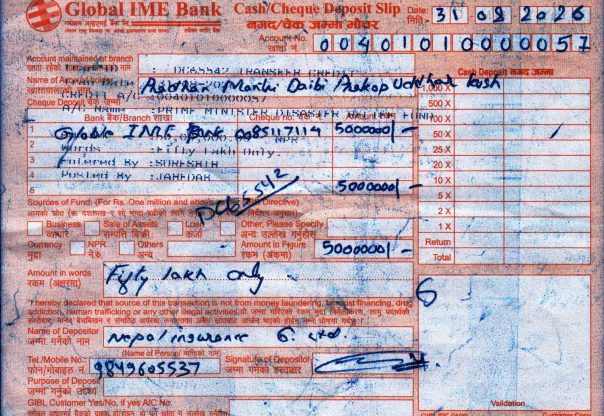 Global IME Bank Cash/Cheque Deposit Slip Date: 31-08-2026
ग्लोबल आइएमई बैंक लि. नगद/चेक जम्मा भौचर मिति:
Account No.
खाता नं. 00401010000057
Account maintained at branch
DC65542 TRANSFER CREDIT
Name of Account holder Pradhan Mantri Daibi Prakop Uddhar Kosh
खातावालाको नाम
CREDIT A/C :00401010000057
Cheque Deposit चेक जम्मा
A/C NAME :PRIME MINISTER DISASTER RELIEF FUND
Cash Deposit नगद जम्मा
Bank बैंक/Branch शाखा Cheque no. चेक नं. Amount रकम
1 Globle IME Bank 0085117114 5000000/-
NPR
2 Words :Fifty Lakh Only.
3 Entered By :SURESHIR
4 Posted By :JAHEDAR
5 5000000/-
DC65542
1,000 X
500 X
100 X
50 X
20 X
10 X
5 X
2 X
1 X
Return
Total
Sources of Fund: (For Rs. One million and above Directive)
Business व्यापार
Sale of Assets सम्पत्ति बिक्री
Loan कर्जा
Other, Please Specify अन्य उल्लेख गर्नुहोस्
Currency मुद्रा
NPR ने.रु.
Others अन्य
Amount in Figure रकम (अंकमा) 5000000/-
Amount in words
रकम (अक्षरमा) Fifty lakh only
I hereby declared that source of this transaction is not from money laundering, terrorist financing, drug
addiction, human trafficking or any other illegal activities.
Name of Depositor
जम्मा गर्नेको नाम Nepal insurance G. Ltd.
(Name of Person/ व्यक्तिको नाम)
Tel./Mobile No.:
फोन/मोबाइल नं 9849605537
Signature of Depositor
जम्मा गर्नेको हस्ताक्षर
Purpose of Deposit
जम्मा गर्नेको उद्देश्य
GIBL Customer Yes/No: If yes A/C No.
Validation
Customer Copy